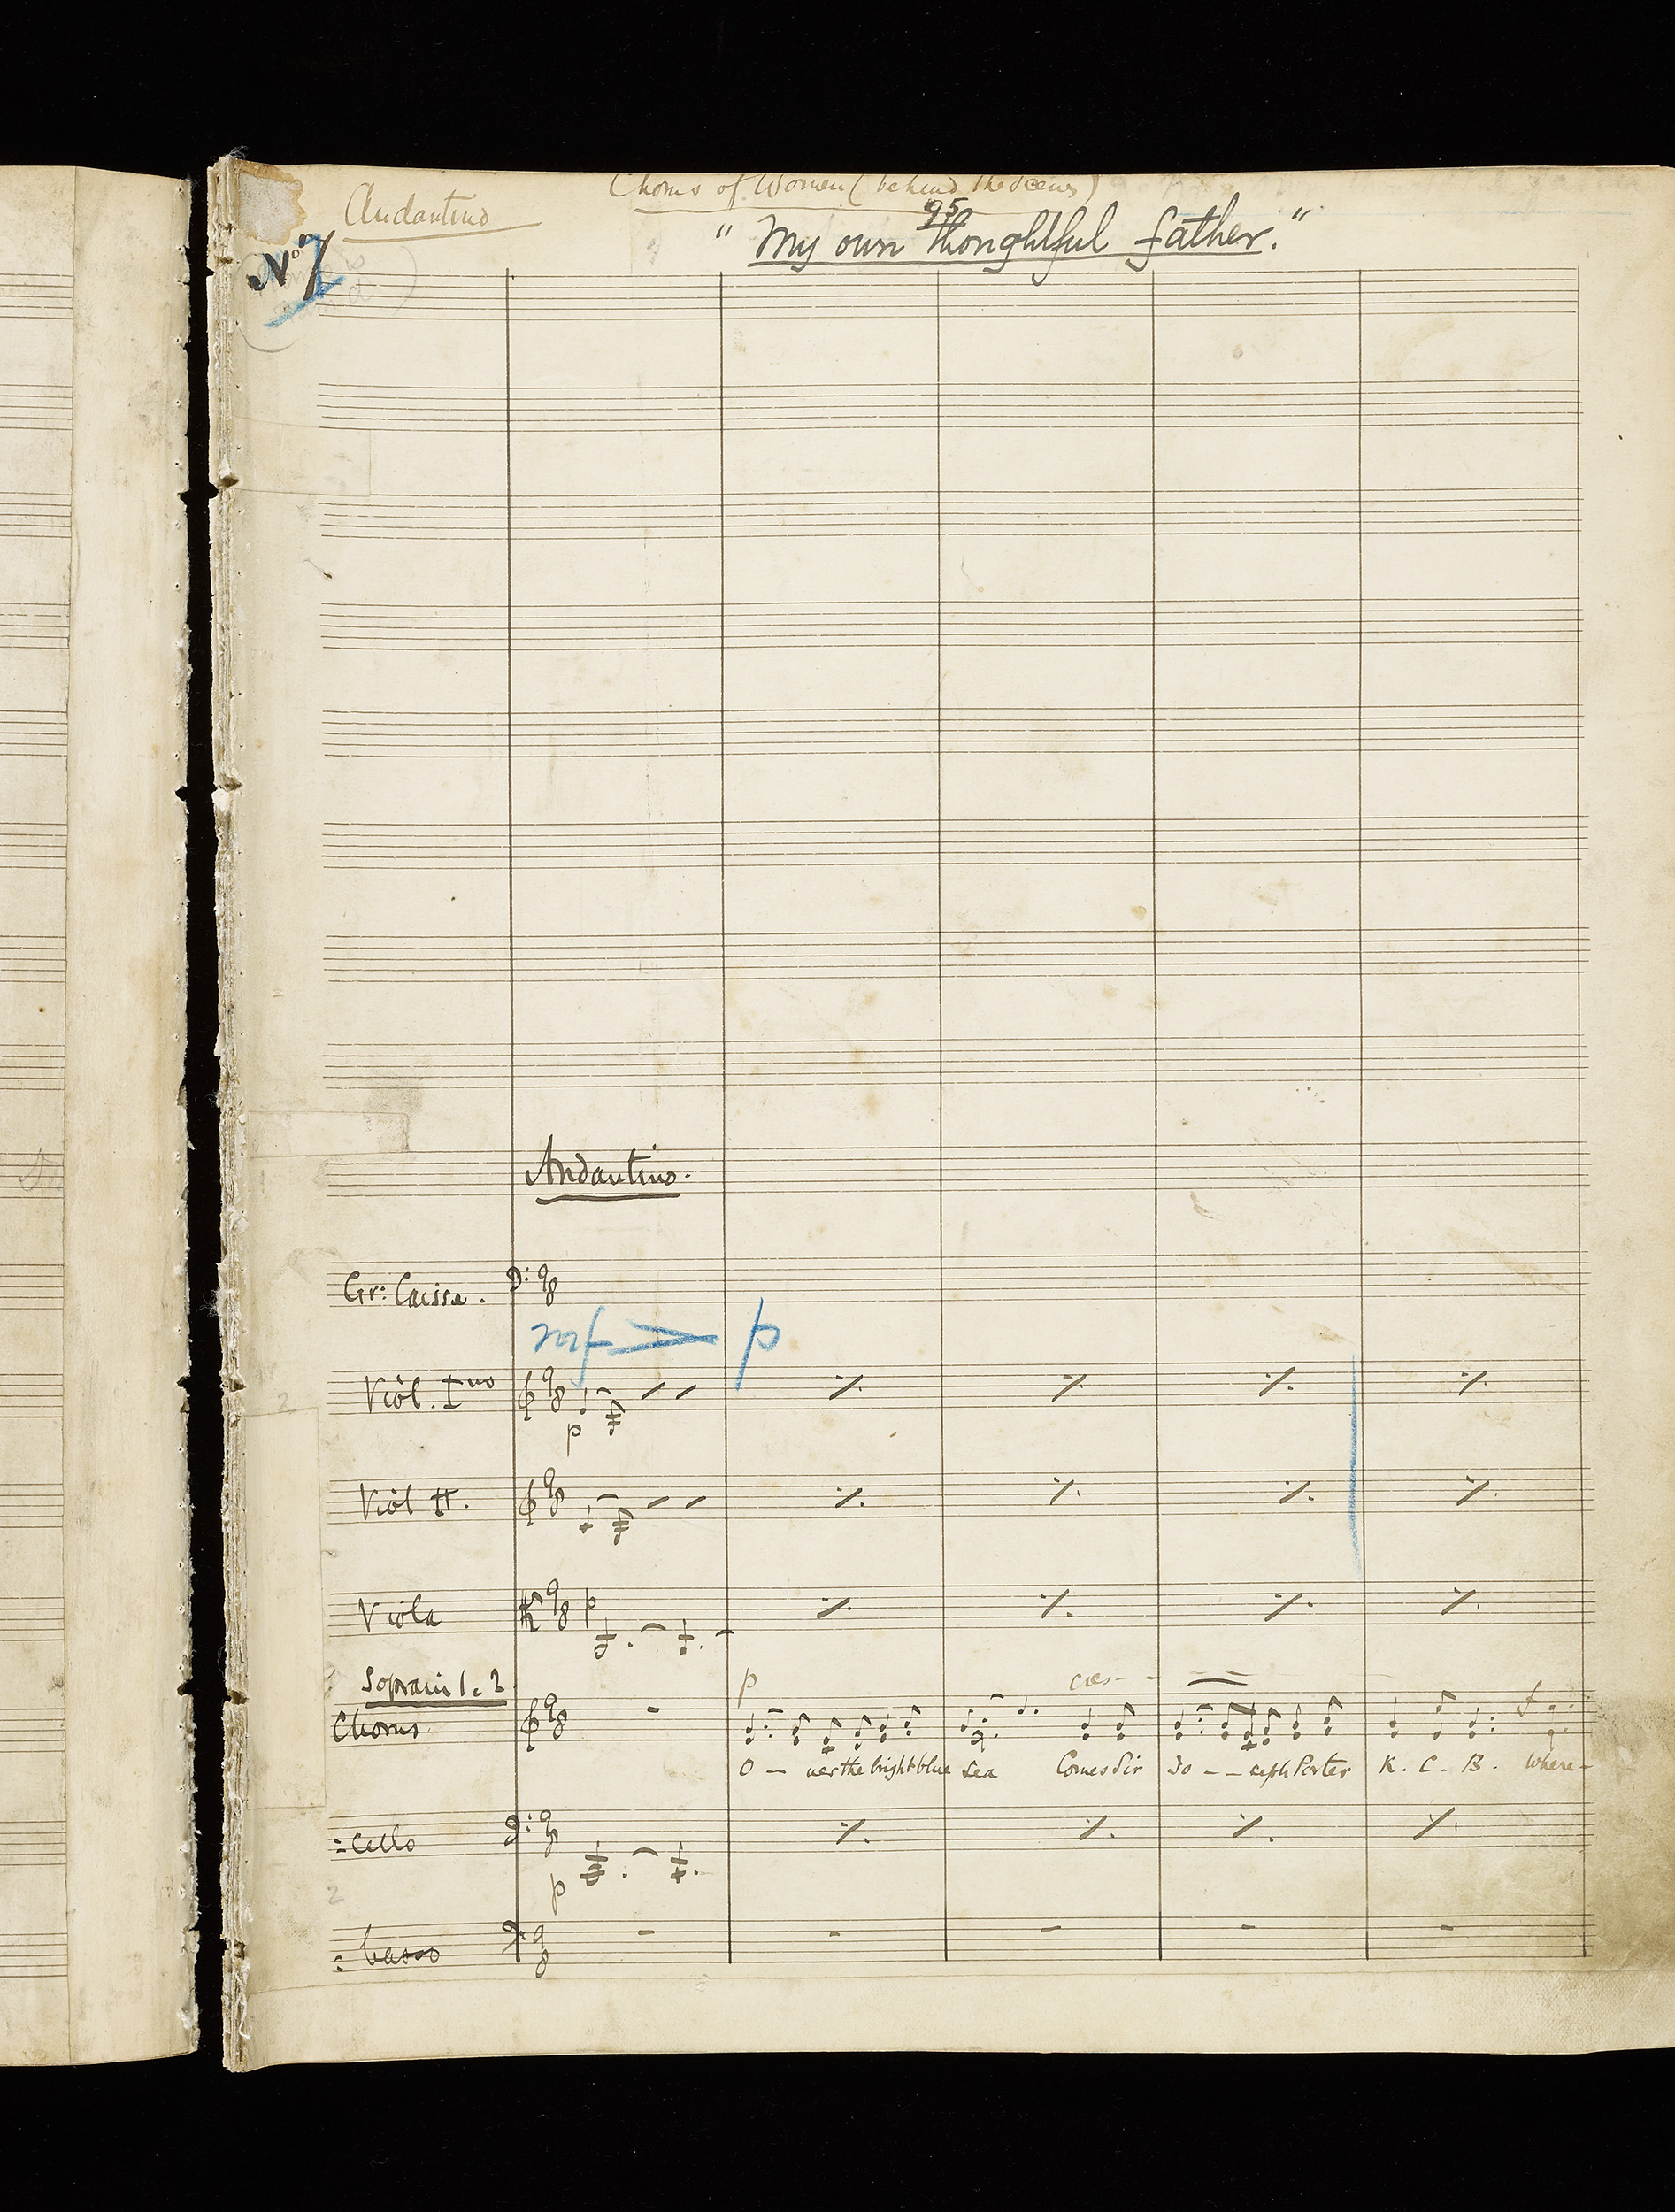 Chorus of Women (behind the scenes)
Andantino
95
"My own thoughtful father."
No. 7
Andantino.
Gr: Caissa.
mf > p
Viol. Imo
p
Viol II.
Viola
p
Soprani 1. 2
Chorus
p cres - -
f
O — ver the bright blue sea Comes Sir Jo - - seph Porter K. C. B. Where-
= Cello
p
2
= basso